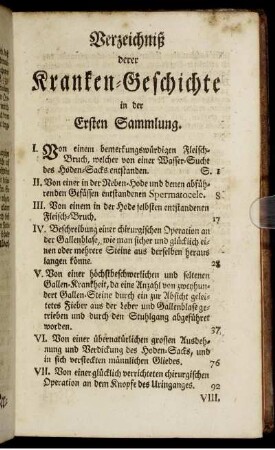 Verzeichniß
derer
Kranken-Geschichte
in der
Ersten Sammlung.
I. Von einem bemerkungswürdigen Fleisch-
Bruch, welcher von einer Wasser-Sucht
des Hoden-Sacks entstanden. S. 1
II. Von einer in der Neben-Hode und denen abfüh-
renden Gefässen entstandenen Spermatocele. 8
III. Von einem in der Hode selbsten entstandenen
Fleisch-Bruch. 17
IV. Beschreibung einer chirurgischen Operation an
der Gallenblase, wie man sicher und glücklich ei-
nen oder mehrere Steine aus derselben heraus
langen könne. 28
V. Von einer höchstbeschwerlichen und seltenen
Gallen-Krankheit, da eine Anzahl von zweyhun-
dert Gallen-Steine durch ein zur Absicht gelei-
tetes Fieber aus der Leber und Gallenblase ge-
trieben und durch den Stuhlgang abgeführet
worden. 37
VI. Von einer übernatürlichen grossen Ausdeh-
nung und Verdickung des Hoden-Sacks, und
in sich versteckten männlichen Gliedes. 76
VII. Von einer glücklich verrichteten chirurgischen
Operation an dem Knopfe des Uringanges. 92
VIII.